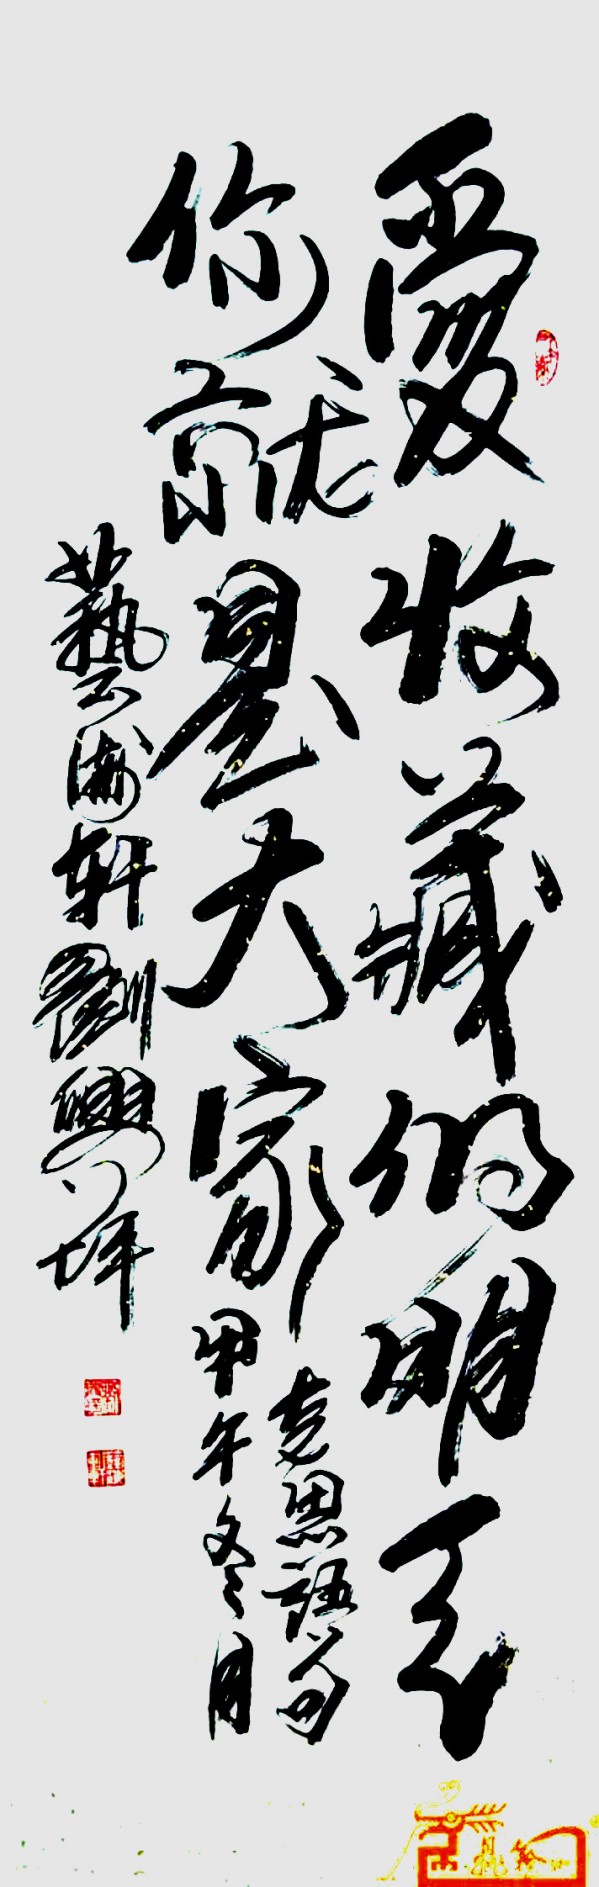 愛收藏的明天
你就是大家
克思語句
甲午冬月
藝海軒劉興坪